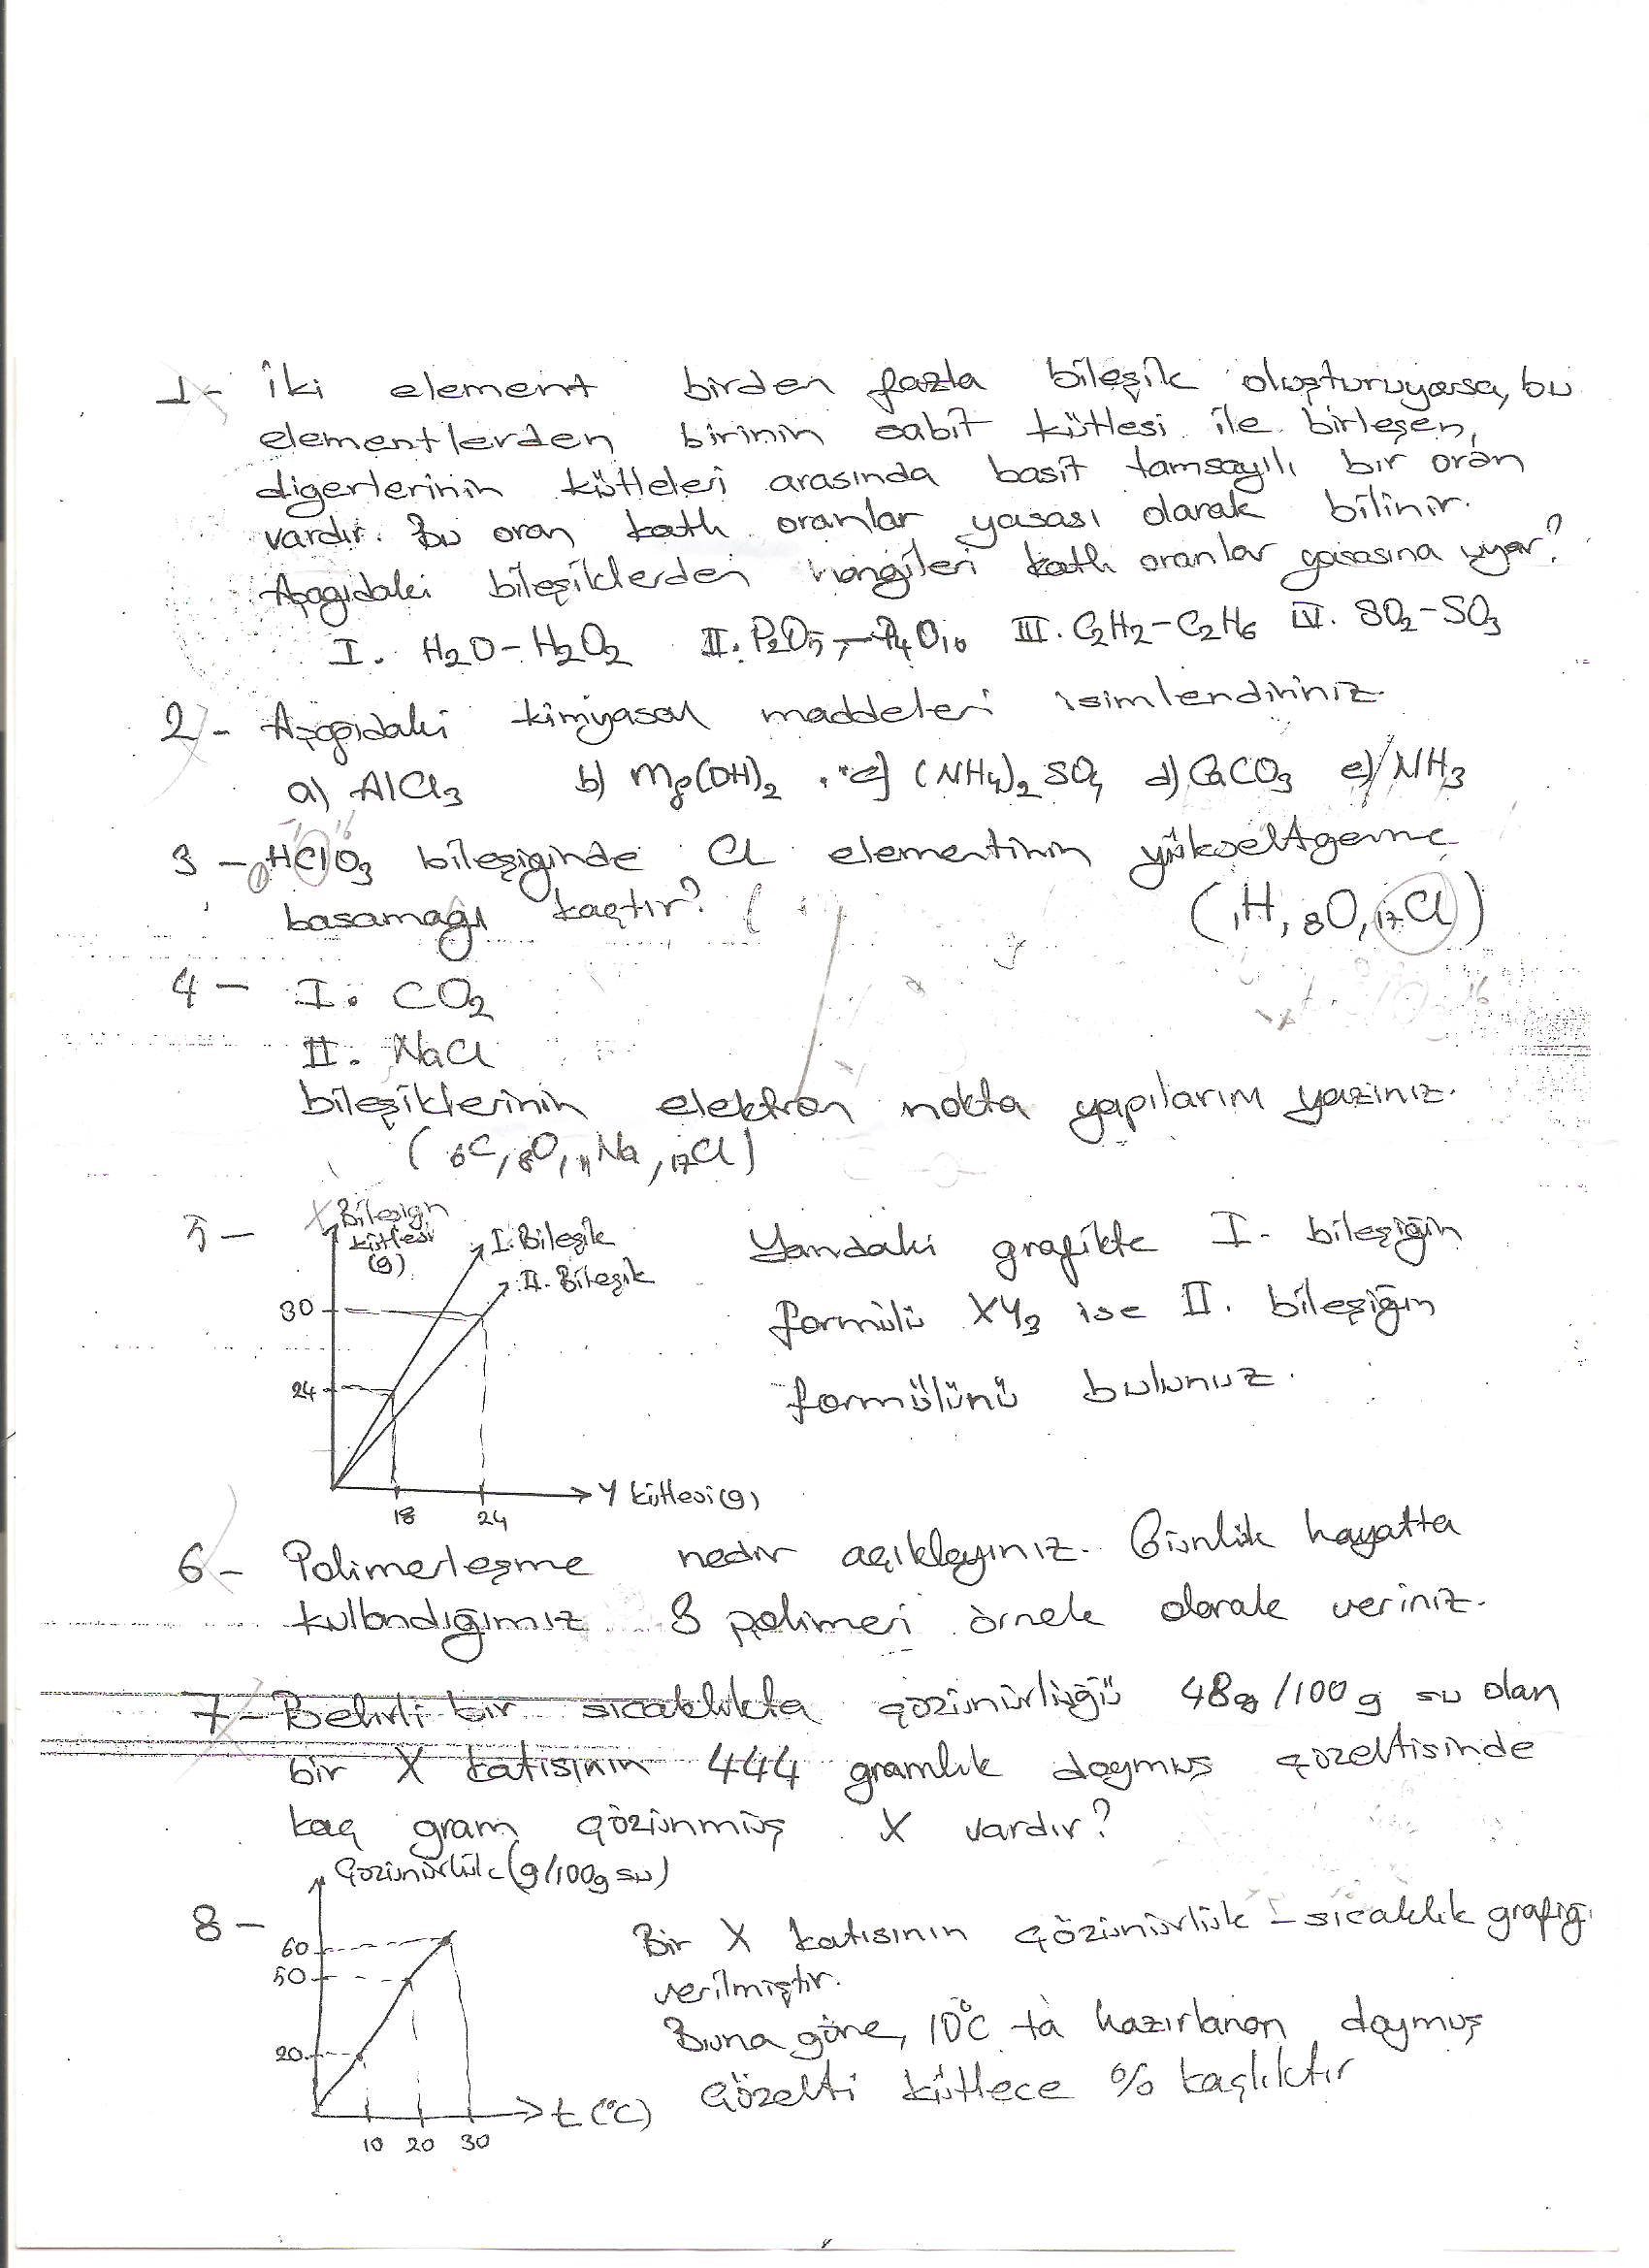 1- İki element birden fazla bileşik oluşturuyorsa, bu
elementlerden birinin sabit kütlesi ile birleşen,
digerlerinin kütleleri arasında basit tamsayılı bir oran
vardır. Bu oran katlı oranlar yasası olarak bilinir.
Aşagıdaki bileşiklerden hangileri katlı oranlar yasasına uyar?
I. H2O-H2O2 II. P2O5-P4O10 III. C2H2-C2H6 IV. SO2-SO3
2- Aşagıdaki kimyasal maddeleri isimlendiriniz.
a) AlCl3 b) Mg(OH)2 c) (NH4)2SO4 d) CaCO3 e) NH3
3- HClO3 bileşiginde Cl elementinin yükseltgenme
basamağı kaçtır? (1H, 8O, 17Cl)
4- I. CO2
II. NaCl
bileşiklerinin elektron nokta yapılarını yazınız.
(6C, 8O, 11Na, 17Cl)
5- Bileşigin
kütlesi
(g)
I. Bileşik
II. Bileşik
30
24
18 24
Y kütlesi(g)
Yandaki grafikte I. bileşiğin
formülü XY3 ise II. bileşiğin
formülünü bulunuz.
6- Polimerleşme nedir açıklayınız. Günlük hayatta
kullandığımız 3 polimeri örnek olarak veriniz.
7- Belirli bir sıcaklıkta çözünürlüğü 48g/100g su olan
bir X katısının 444 gramlık doymuş çözeltisinde
kaç gram çözünmüş X vardır?
Çözünürlük (g/100g su)
8-
60
50
20
10 20 30
t(°C)
Bir X katısının çözünürlük - sıcaklık grafiği
verilmiştir.
Buna göre, 10°C ta hazırlanan doymuş
çözelti kütlece % kaçlıktır